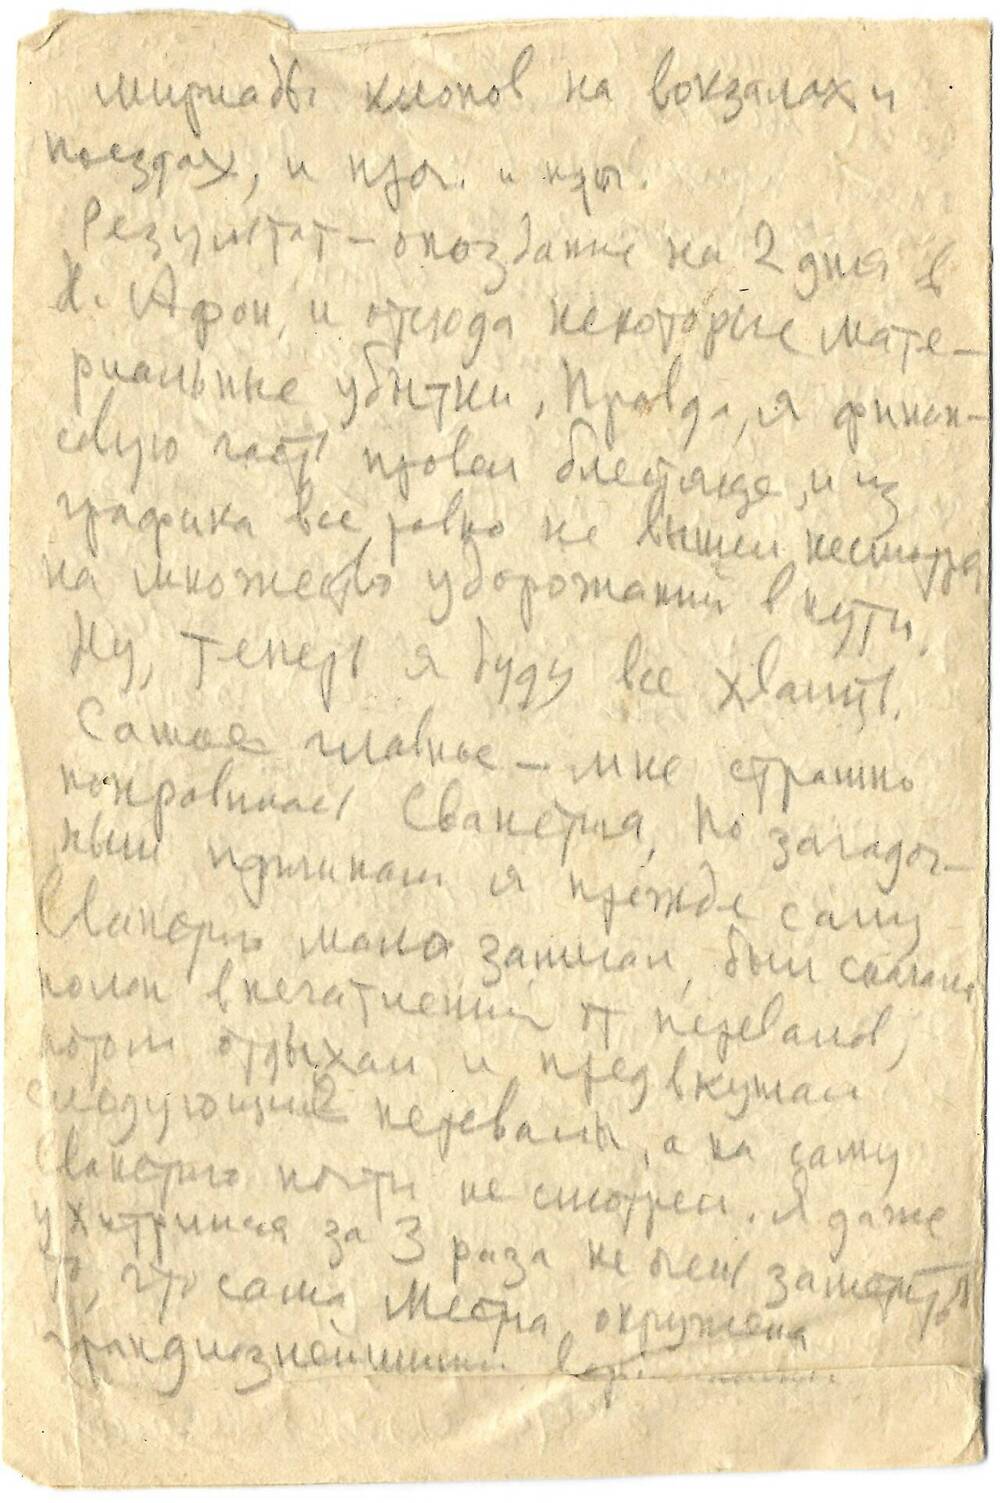 мириады клопов на вокзалах и
поездах, и проч. и проч.
Результат – опоздание на 2 дня в
Н. Афон, и отсюда некоторые мате-
риальные убытки. Правда, я финан-
совую часть провел блестяще, и из
графика все равно не вышел, несмотря
на множество удорожаний в пути.
Ну, теперь я буду все хвалить.
Самое главное – мне страшно
понравилась Сванетия. По загадоч-
ным причинам я прежде саму
Сванетию мало замечал, был сначала
полон впечатлений от перевалов,
потом отдыхал и предвкушал
следующие перевалы, а на саму
Сванетию почти не смотрел. Я даже
ухитрился за 3 раза не очень заметить
то, что сама Местиа окружена
грандиознейшими